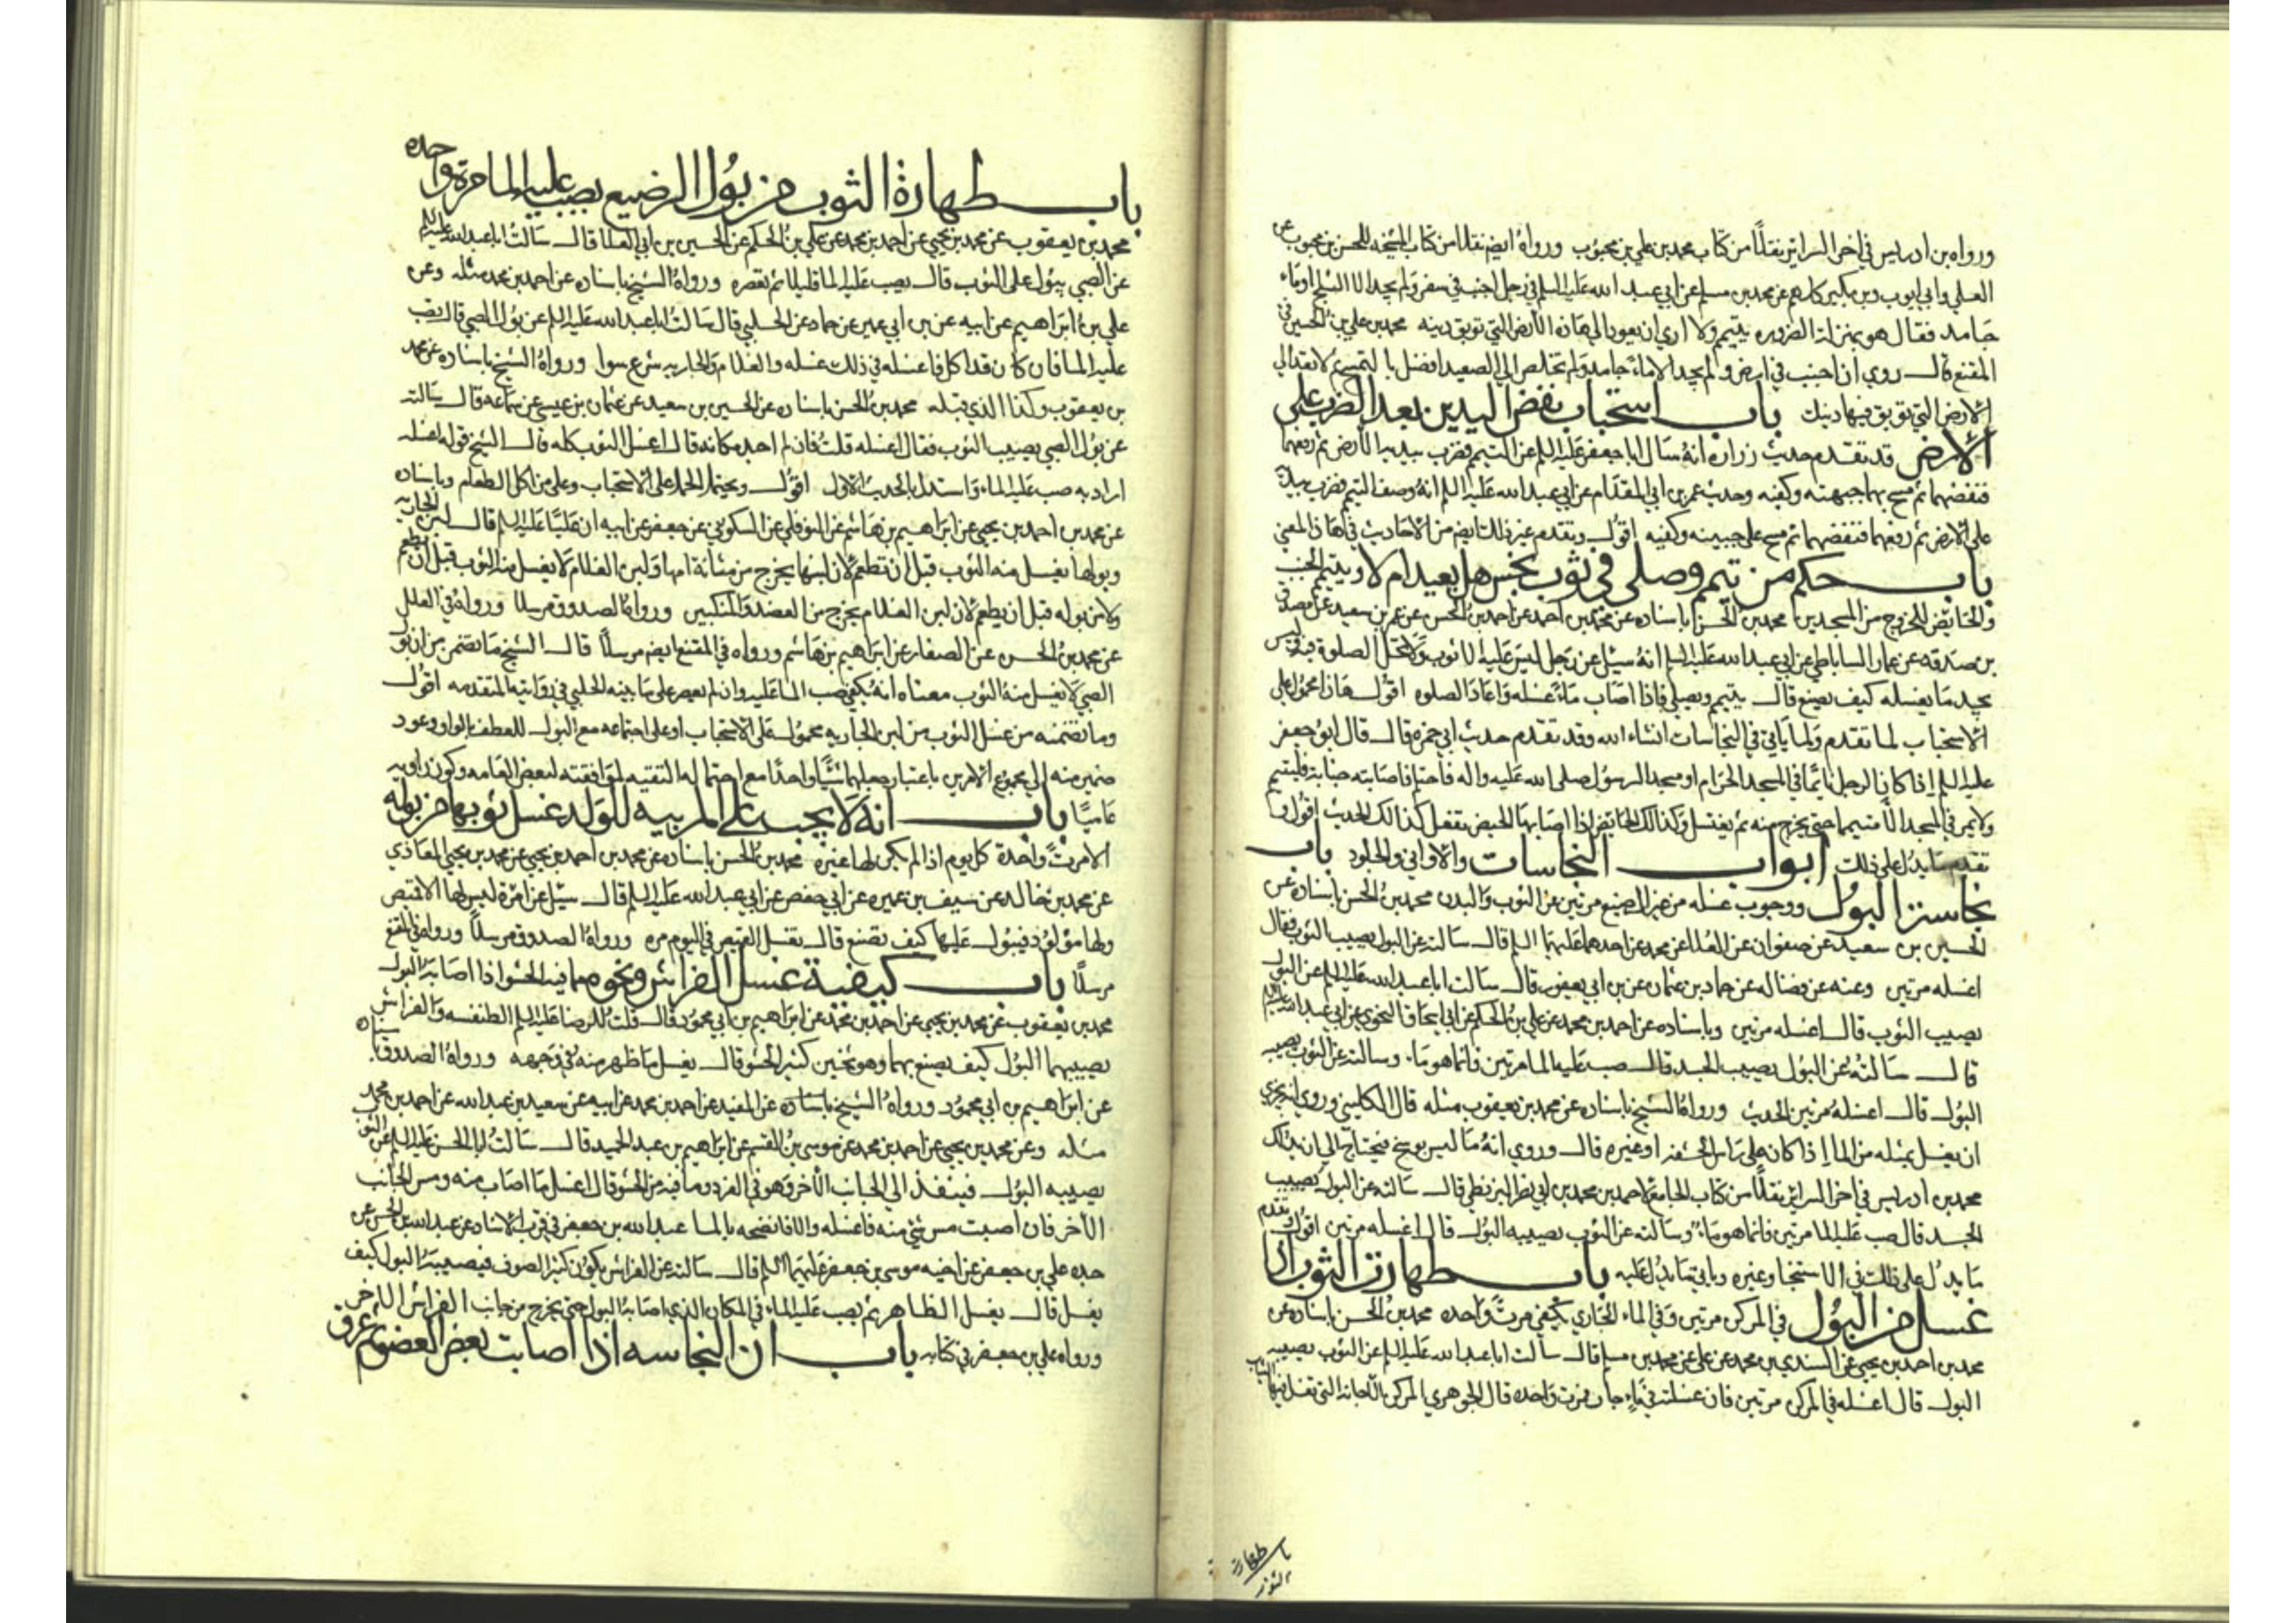 ورواه بن ادريس في اخر السرائر نقلًا من كتاب محمد بن علي بن محبوب ورواه ايضم نقلا من كتاب المشيخه للحسن بن محبوب عن
العلي وابي ايوب وبن بكير كلهم عن محمد بن مسلم عن ابي عبد الله عليه السلم في رجل اجنب في سفر ولم يجد الا الثلج او ماء
جامد فقال هو بمنزلة الضروره يتيمم ولا اري ان يعود الي هاذه الأرض التي توبق دينه محمد بن علي بن الحسين في
المقنع قال روي ان اجنب في ارض ولم يجد الا ماءً جامد ولم تخلص الي الصعيد افضل بالتمسح ثم لا تعد الي
الأرض التي توبق فيها دينك باب استحباب نفض اليدين بعد الضرب علي
الأرض قد تقدم حديث زراره انه سال ابا جعفر عليه السلم عن التيمم فضرب بيديه الأرض ثم رفعهما
فنفضهما ثم مسح بهما جبهته وكفيه وحديث عمر بن ابي المقدام عن ابي عبد الله عليه السلم انه وصف التيمم فضرب بيديه
علي الأرض ثم رفعهما فنفضهما ثم مسح علي جبينه وكفيه اقول وتقدم غير ذلك ايضم من الأحاديث في هاذا المعني
باب حكم من تيمم وصلي في ثوب نجس هل يعيد ام لا ويتيمم الجنب
والحائض للخروج من المسجدين محمد بن الحسن باسناده عن محمد بن احمد عن احمد بن الحسن عن عمر بن سعيد عن مصدق
بن صدقه عن عمار الساباطي عن ابي عبد الله عليه السلم انه سيل عن رجل ليس عليه الا ثوب ولا تحل الصلوة فيه وليس
يجد ما يغسله كيف يصنع قال يتيمم ويصلي فاذا اصاب ماءً غسله واعاد الصلوه اقول هاذا محمول علي
الاستحباب لما تقدم ولما ياتي في النجاسات انشاء الله وقد تقدم حديث ابي حمزه قال قال ابو جعفر
عليه السلم اذا كان الرجل نائمًا في المسجد الحرام او مسجد الرسول صلي الله عليه واله فاحتلم فاصابته جنابة فليتيمم
ولا يمر في المسجد الا متيمما حتي يخرج منه ثم يغتسل وكذالك الحائض اذا اصابها الحيض تفعل كذالك الحديث اقول و
تقدم ما يدل علي ذلك ابواب النجاسات والاواني والجلود باب
نجاسة البول ووجوب غسله من غير الرضيع مرتين عن الثوب والبدن محمد بن الحسن باسناده عن
الحسين بن سعيد عن صفوان عن العلا عن محمد عن احدهما عليهما السلم قال سالته عن البول يصيب الثوب فقال
اغسله مرتين وعنه عن فضاله عن حماد بن عثمان عن بن ابي يعفور قال سالت ابا عبد الله عليه السلم عن البول
يصيب الثوب قال اغسله مرتين وباسناده عن احمد بن محمد عن علي بن الحكم عن ابي اسحاق النحوي عن ابي عبد الله عليه السلم
قال سالته عن البول يصيب الجسد قال صب عليه الما مرتين فانما هو ماء وسالته عن الثوب يصيبه
البول قال اغسله مرتين الحديث ورواه الشيخ باسناده عن محمد بن يعقوب مثله قال الكليني وروي انه يجزي
ان يغسل بمثله من الما اذا كان علي راس الحشفه او غيره قال وروي انه ما ليس بوسخ فيحتاج الي ان يدلك
محمد بن ادريس في اخر السرائر نقلًا من كتاب الجامع لاحمد بن محمد بن ابي نصر البزنطي قال سالته عن البول يصيب
الجسد قال صب عليه الما مرتين فانما هو ماء وسالته عن الثوب يصيبه البول قال اغسله مرتين اقول وتقدم
ما يدل علي ذلك في الاستنجا وغيره وياتي ما يدل عليه باب طهارة الثوب اذا
غسل من البول في المركن مرتين وفي الماء الجاري يكفي مرتً واحده محمد بن الحسن باسناده عن
محمد بن احمد بن يحيي عن السندي بن محمد عن علي عن محمد بن مسلم قال سالت ابا عبد الله عليه السلم عن الثوب يصيبه
البول قال اغسله في المركن مرتين فان غسلته في ماءٍ جار فمرت واحده قال الجوهري المركن بالأجانة التي تغسل فيها الثياب
باب طهارة
الثوب
باب طهارة الثوب من بول الرضيع يصب عليه الما مرة واحده
محمد بن يعقوب عن محمد بن يحيي عن احمد بن محمد عن علي بن الحكم عن الحسين بن ابي العلا قال سالت ابا عبد الله عليه السلم
عن الصبي يبول علي الثوب قال يصب عليه الما قليلا ثم تعصره ورواه الشيخ باسناده عن احمد بن محمد مثله وعن
علي بن ابراهيم عن ابيه عن بن ابي عمير عن حماد عن الحلبي قال سالت ابا عبد الله عليه السلم عن بول الصبي قال يصب
عليه الما فان كان قد اكل فاغسله في ذلك غسله والغلام والجاريه شرع سوا ورواه الشيخ باسناده عن محمد
بن يعقوب وكذا الذي قبله محمد بن الحسن باسناده عن الحسين بن سعيد عن عثمان بن عيسي عن سماعه قال سالته
عن بول الصبي يصيب الثوب فقال اغسله قلت فان لم اجد مكانه قال اغسل الثوب كله قال الشيخ قوله اغسله
اراد به صب عليه الماء واستدل بالحديث الأول اقول ويحتمل الحمل علي الأستحباب وعلي من اكل الطعام وباسناده
عن محمد بن احمد بن يحيي عن ابراهيم بن هاشم عن النوفلي عن السكوني عن جعفر عن ابيه ان عليًا عليه السلم قال لبن الجاريه
وبولها يغسل منه الثوب قبل ان تطعم لأن لبنها يخرج من مثانة امها ولبن الغلام لا يغسل منه الثوب قبل ان يطعم
ولا من بوله قبل ان يطعم لأن لبن الغلام يخرج من العضد والمنكبين ورواه الصدوق مرسلا ورواه في العلل
عن محمد بن الحسن عن الصفار عن ابراهيم بن هاشم ورواه في المقنع ايضم مرسلًا قال الشيخ ما تضمن من ان بول
الصبي لا يغسل منه الثوب معناه انه يكفي صب الما عليه وان لم يعصر علي ما بينه الحلبي في روايته المتقدمه اقول
وما تضمنه من غسل الثوب من لبن الجاريه محمول علي الاستحباب او علي اجتماعه مع البول للعطف بالواو وعود
ضمير منه الي مجموع الأمرين باعتبار جعلهما شيًا واحدًا مع احتماله التقيه لموافقته لبعض العامه وكون راويه
عاميًا باب انه لا يجب علي المربيه للولد غسل ثوبها من بوله
الا مرتً واحدة كل يوم اذا لم يكن لها غيره محمد بن الحسن باسناده عن محمد بن احمد بن يحيي عن محمد بن يحيي المعاذي
عن محمد بن خالد عن سيف بن عميره عن ابي حفص عن ابي عبد الله عليه السلم قال سيل عن امرة ليس لها الا قميص
ولها مولود فيبول عليها كيف تصنع قال تغسل القميص في اليوم مره ورواه الصدوق مرسلًا ورواه في المقنع
مرسلًا باب كيفية غسل الفراش ونحوه مما فيه الحشو اذا اصابه البول
محمد بن يعقوب عن محمد بن يحيي عن احمد بن محمد عن ابراهيم بن ابي محمود قال قلت للرضا عليه السلم الطنفسه والفراش
يصيبهما البول كيف يصنع بهما وهو ثخين كثير الحشو قال يغسل ما ظهر منه في وجهه ورواه الصدوق باسناده
عن ابراهيم بن ابي محمود ورواه الشيخ باسناده عن المفيد عن احمد بن محمد عن ابيه عن سعيد بن عبد الله عن احمد بن محمد
مثله وعن محمد بن يحيي عن احمد بن محمد عن موسي بن القسم عن ابراهيم بن عبد الحميد قال سالت ابا الحسن عليه السلم عن الثوب
يصيبه البول فينفذ الي الجانب الأخر وهو في الفرو وما فيه من الحشو قال اغسل ما اصاب منه ومس الجانب
الأخر فان اصبت مس شيءٍ منه فاغسله والا فانضحه بالما عبد الله بن جعفر في قرب الاسناد عن عبد الله بن الحسن عن
جده علي بن جعفر عن اخيه موسي بن جعفر عليهما السلم قال سالته عن الفراش يكون كثير الصوف فيصيبه البول كيف
يغسل قال يغسل الظاهر ثم يصب عليه الماء في المكان الذي اصابه البول حتي يخرج من جانب الفراش الاخر
ورواه علي بن جعفر في كتابه باب ان النجاسه اذا اصابت بعض العضو ثم عرق